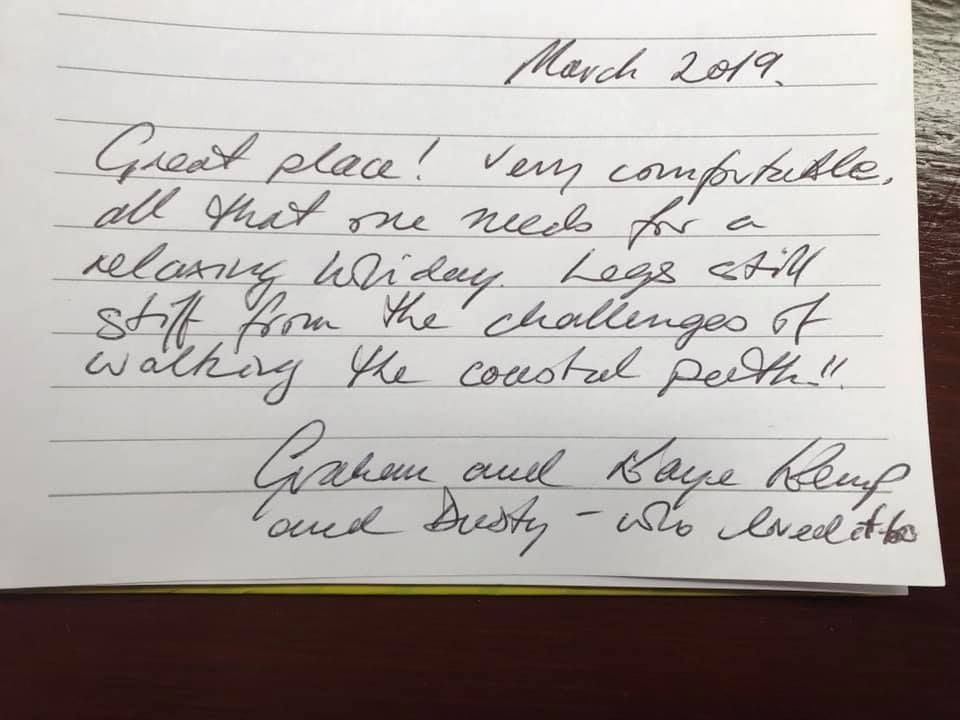 March 2019.
Great place! Very comfortable,
all that one needs for a
relaxing holiday. Legs still
stiff from the challenges of
walking the coastal path!!
Graham and Kaye Kemp
and Dusty - who loved it too